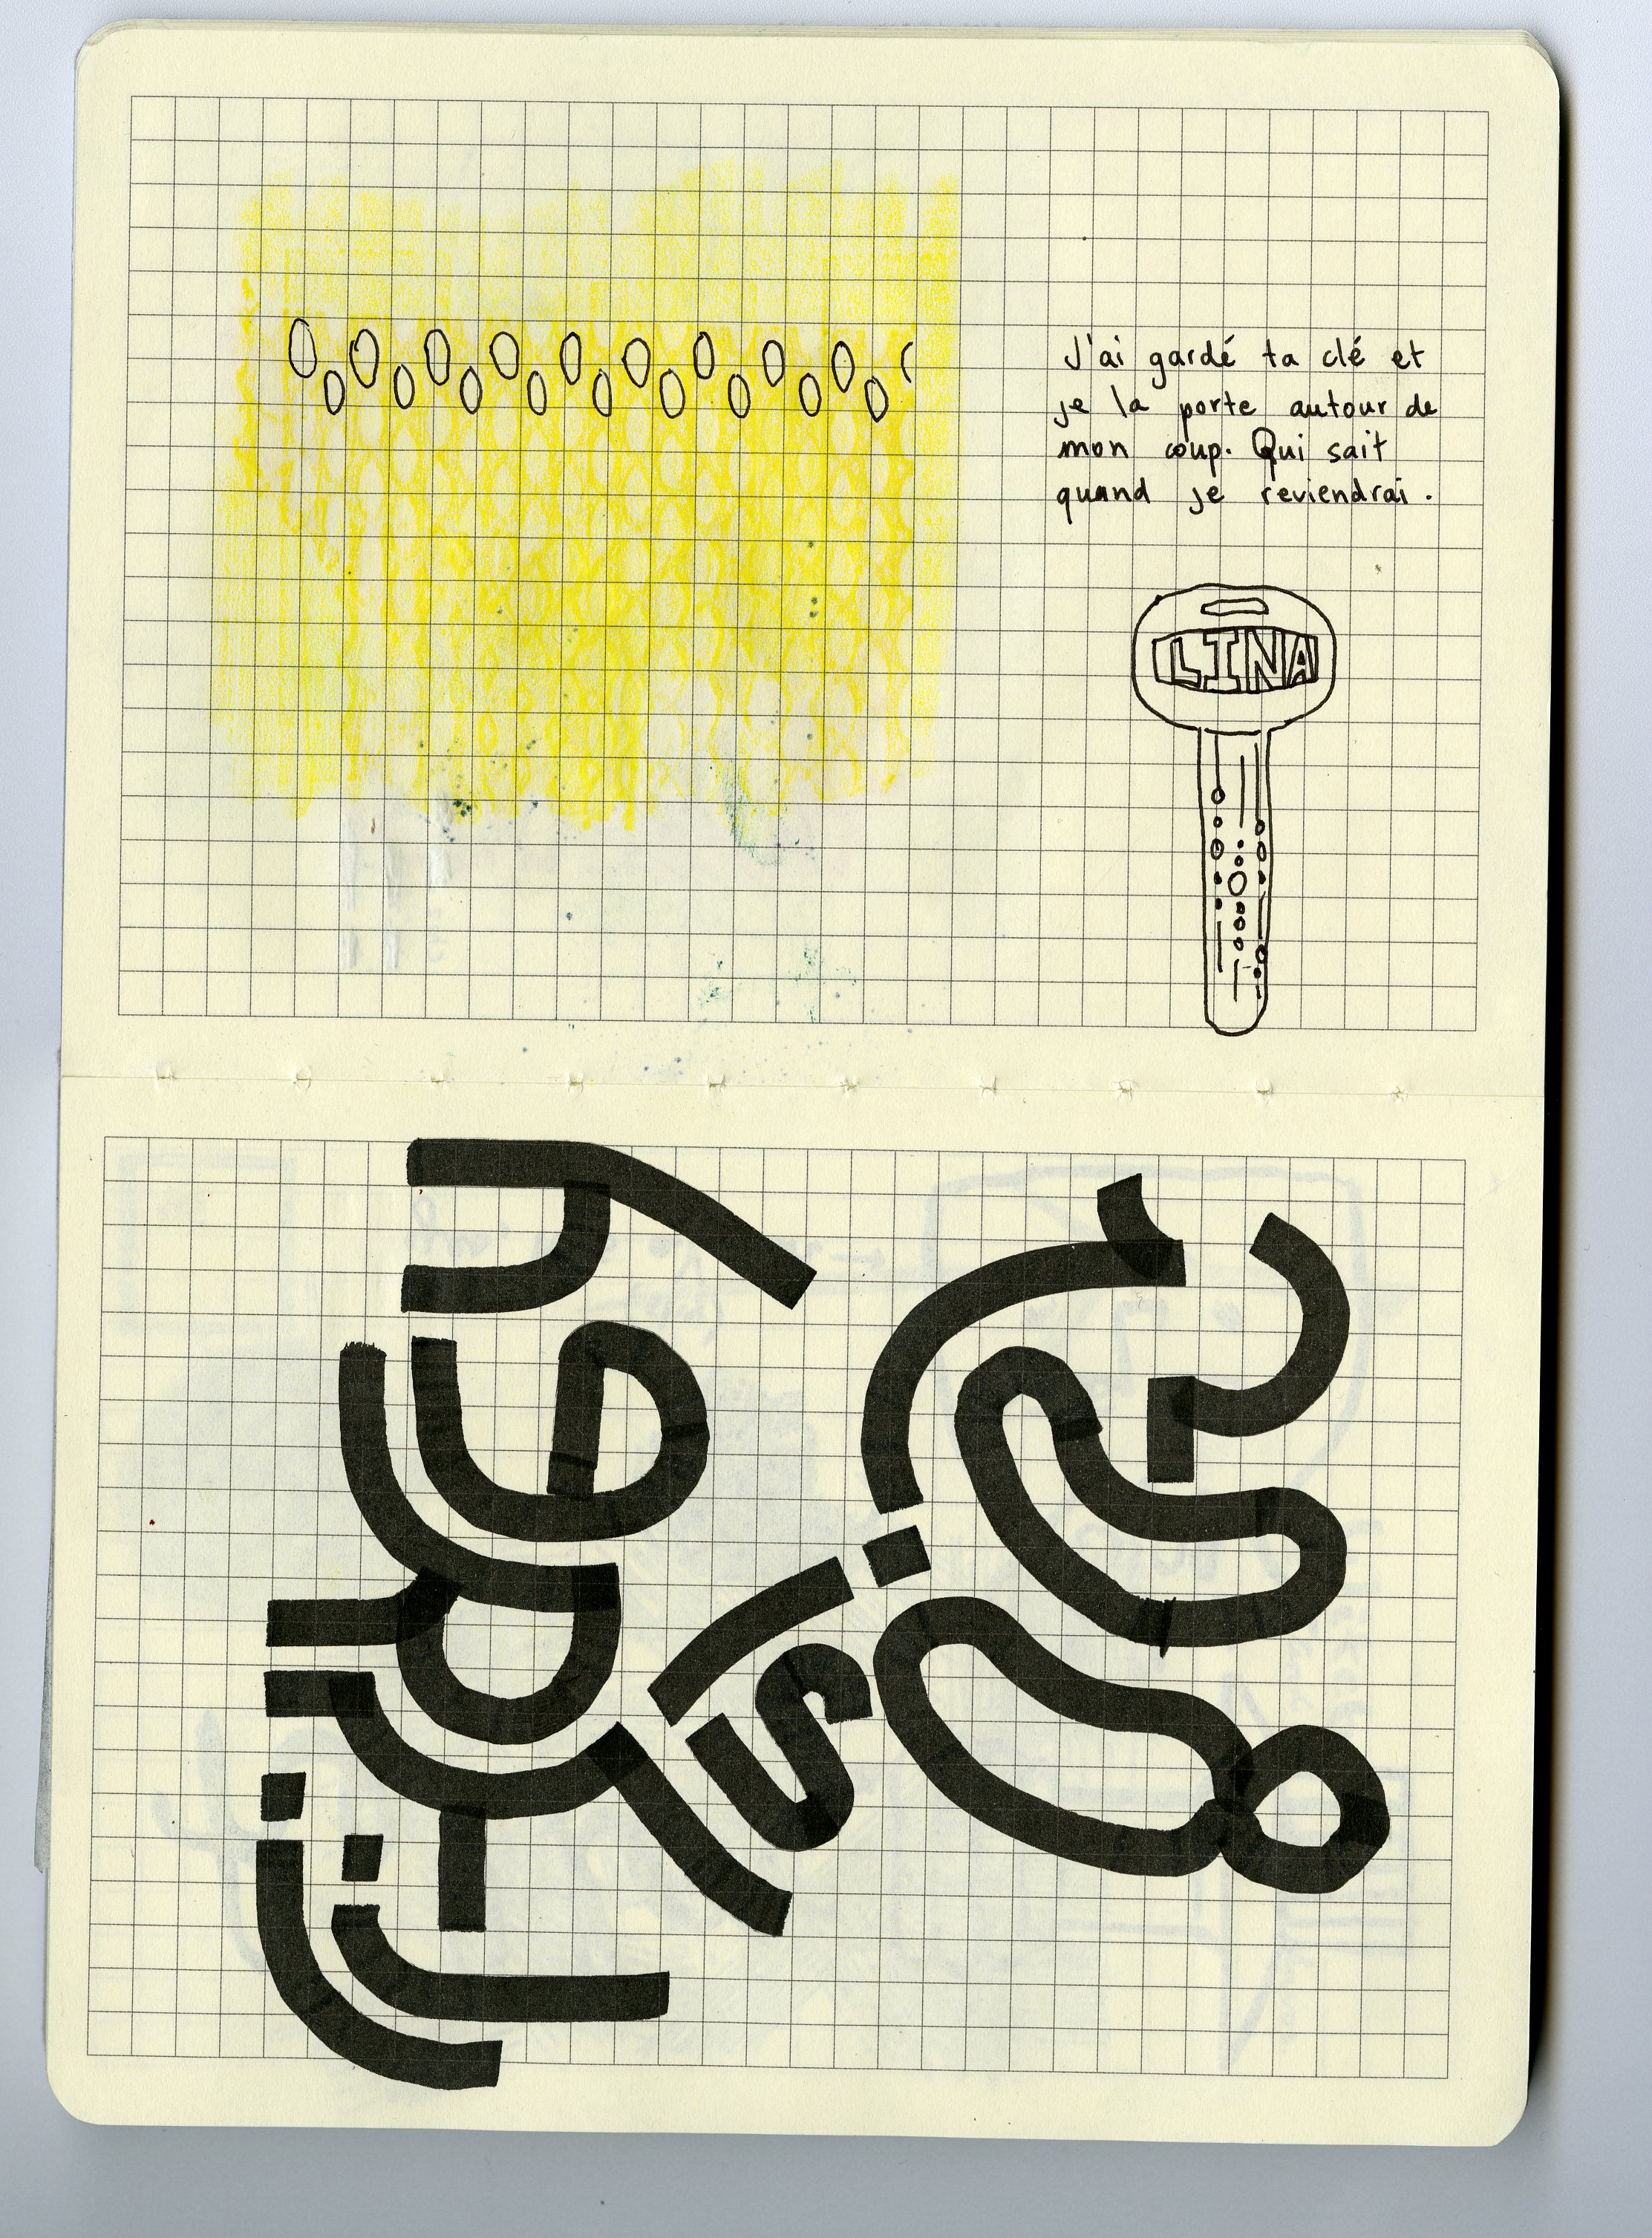 J'ai gardé ta clé et
je la porte autour de
mon coup. Qui sait
quand je reviendrai.
LINA